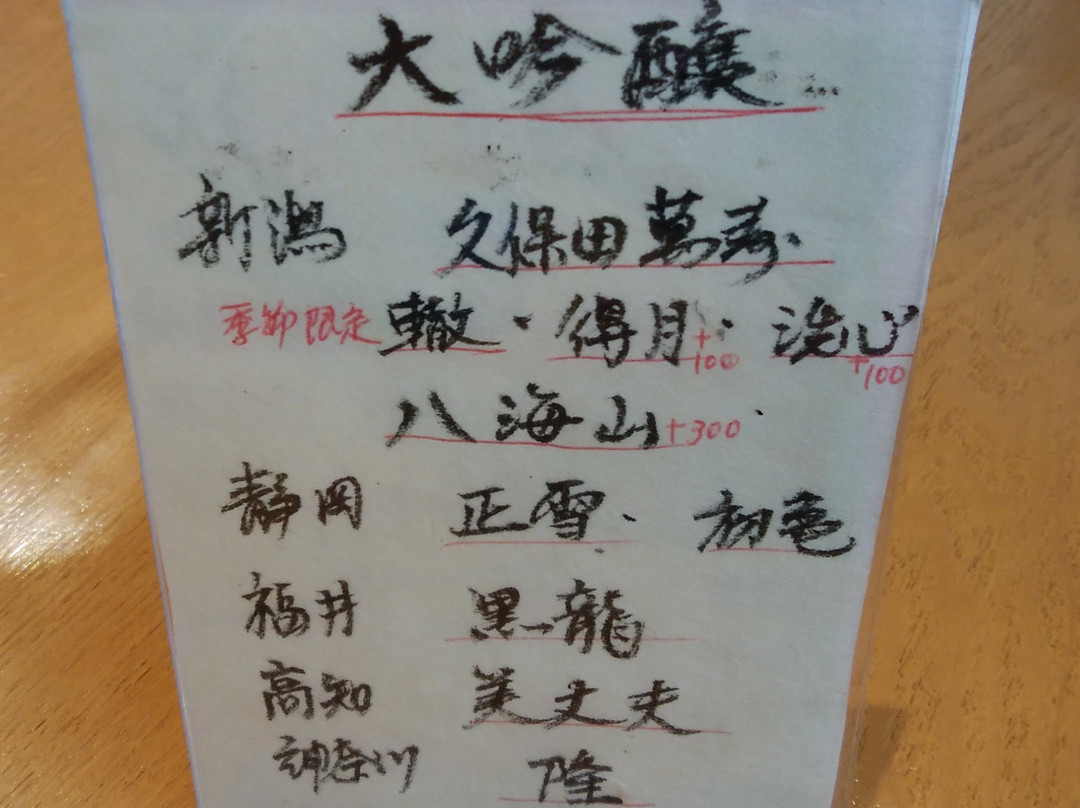 大吟醸
新潟 久保田萬寿・
季節限定 轍・得月+100・洗心+100
八海山+300
静岡 正雪・初亀
福井 黒龍
高知 美丈夫
神奈川 隆